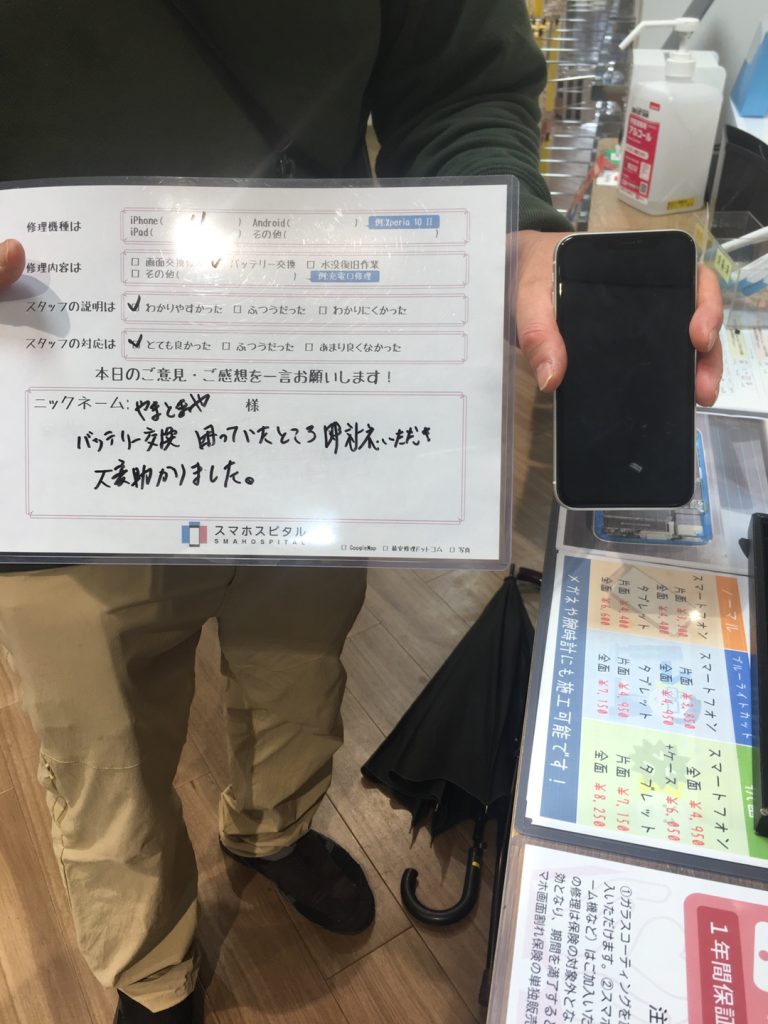 修理機種は
iPhone( 11 ) Android( ) 例:Xperia 10 II
iPad( ) その他( )
修理内容は
□ 画面交換 ✓ バッテリー交換 □ 水没復旧作業
□ その他( ) 例:充電口修理
スタッフの説明は ✓ わかりやすかった □ ふつうだった □ わかりにくかった
スタッフの対応は ✓ とても良かった □ ふつうだった □ あまり良くなかった
本日のご意見・ご感想を一言お願いします!
ニックネーム: やまとまや 様
バッテリー交換 困っていたところ 即対応いただき
大変助かりました。
スマホスピタル
SMAHOSPITAL
□ GoogleMap □ 最安修理ドットコム □ 写真
アルコール
ノーマル
スマートフォン
片面 ¥3,300
全面 ¥4,400
タブレット
片面 ¥4,400
全面 ¥6,600
ブルーライトカット
スマートフォン
片面 ¥3,850
全面 ¥4,950
タブレット
片面 ¥4,950
全面 ¥7,150
スマートフォン
全面 ¥4,950
+ケース ¥6,050
タブレット
片面 ¥7,150
全面 ¥8,250
メガネや腕時計にも施工可能です!
1年間保証
注
①ガラスコーティングを
入いただけます。②スマホ
ーム機など)はご加入いた
の修理は保険の対象外とな
効となり、期間を満了すると
マホ画面割れ保険の単独販売